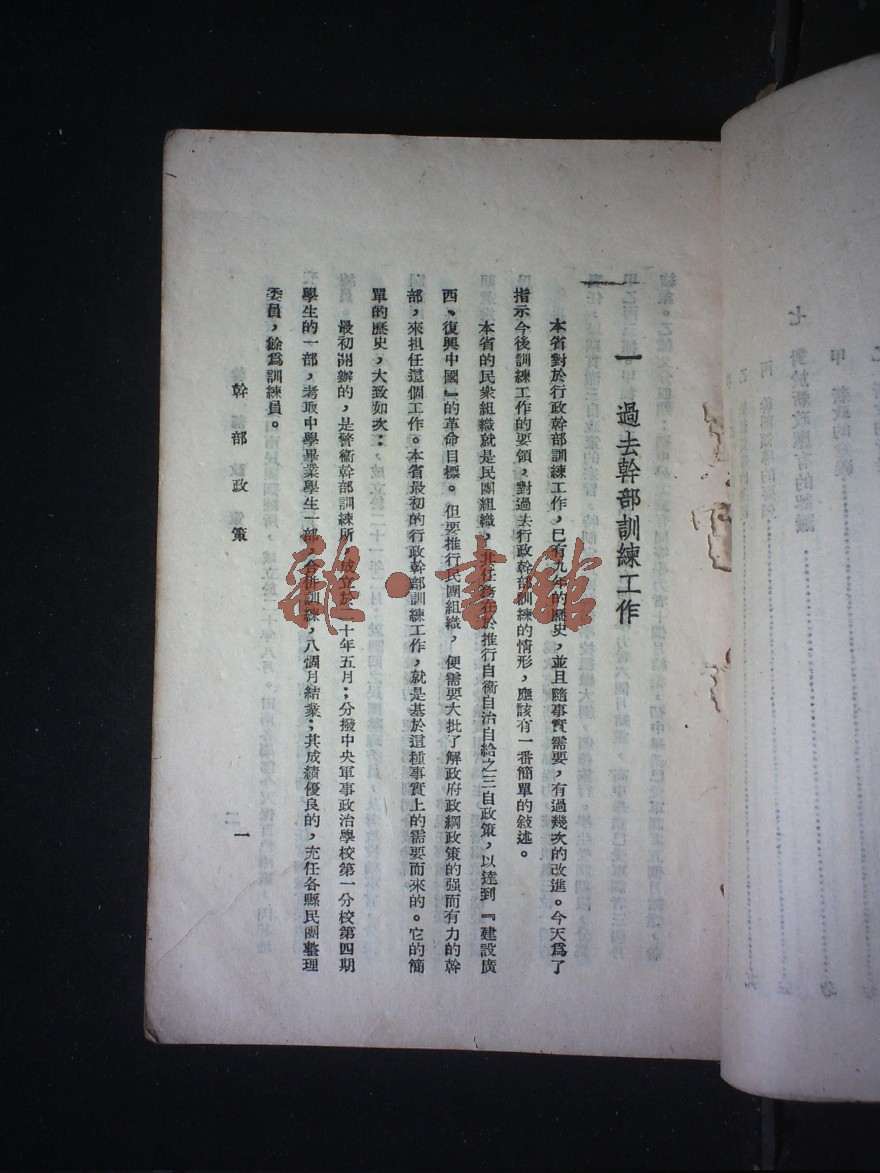 一　過去幹部訓練工作
本省對於行政幹部訓練工作，已有九年的歷史，並且隨事實需要，有過幾次的改進。今天爲了
指示今後訓練工作的要領，對過去行政幹部訓練的情形，應該有一番簡單的敍述。
本省的民衆組織就是民團組織，其任務在於推行自衞自治自給之三自政策，以達到『建設廣
西、復興中國』的革命目標。但要推行民團組織，便需要大批了解政府政綱政策的强而有力的幹
部，來担任這個工作。本省最初的行政幹部訓練工作，就是基於這種事實上的需要而來的。它的簡
單的歷史，大致如次：
最初開辦的，是警衞幹部訓練所，成立於二十年五月；分撥中央軍事政治學校第一分校第四期
學生的一部，考取中學畢業學生一部，合併訓練，八個月結業；其成績優良的，充任各縣民團整理
委員，餘爲訓練員。
幹部政策
一
雜·書館
七　對於新政應有的認識
甲